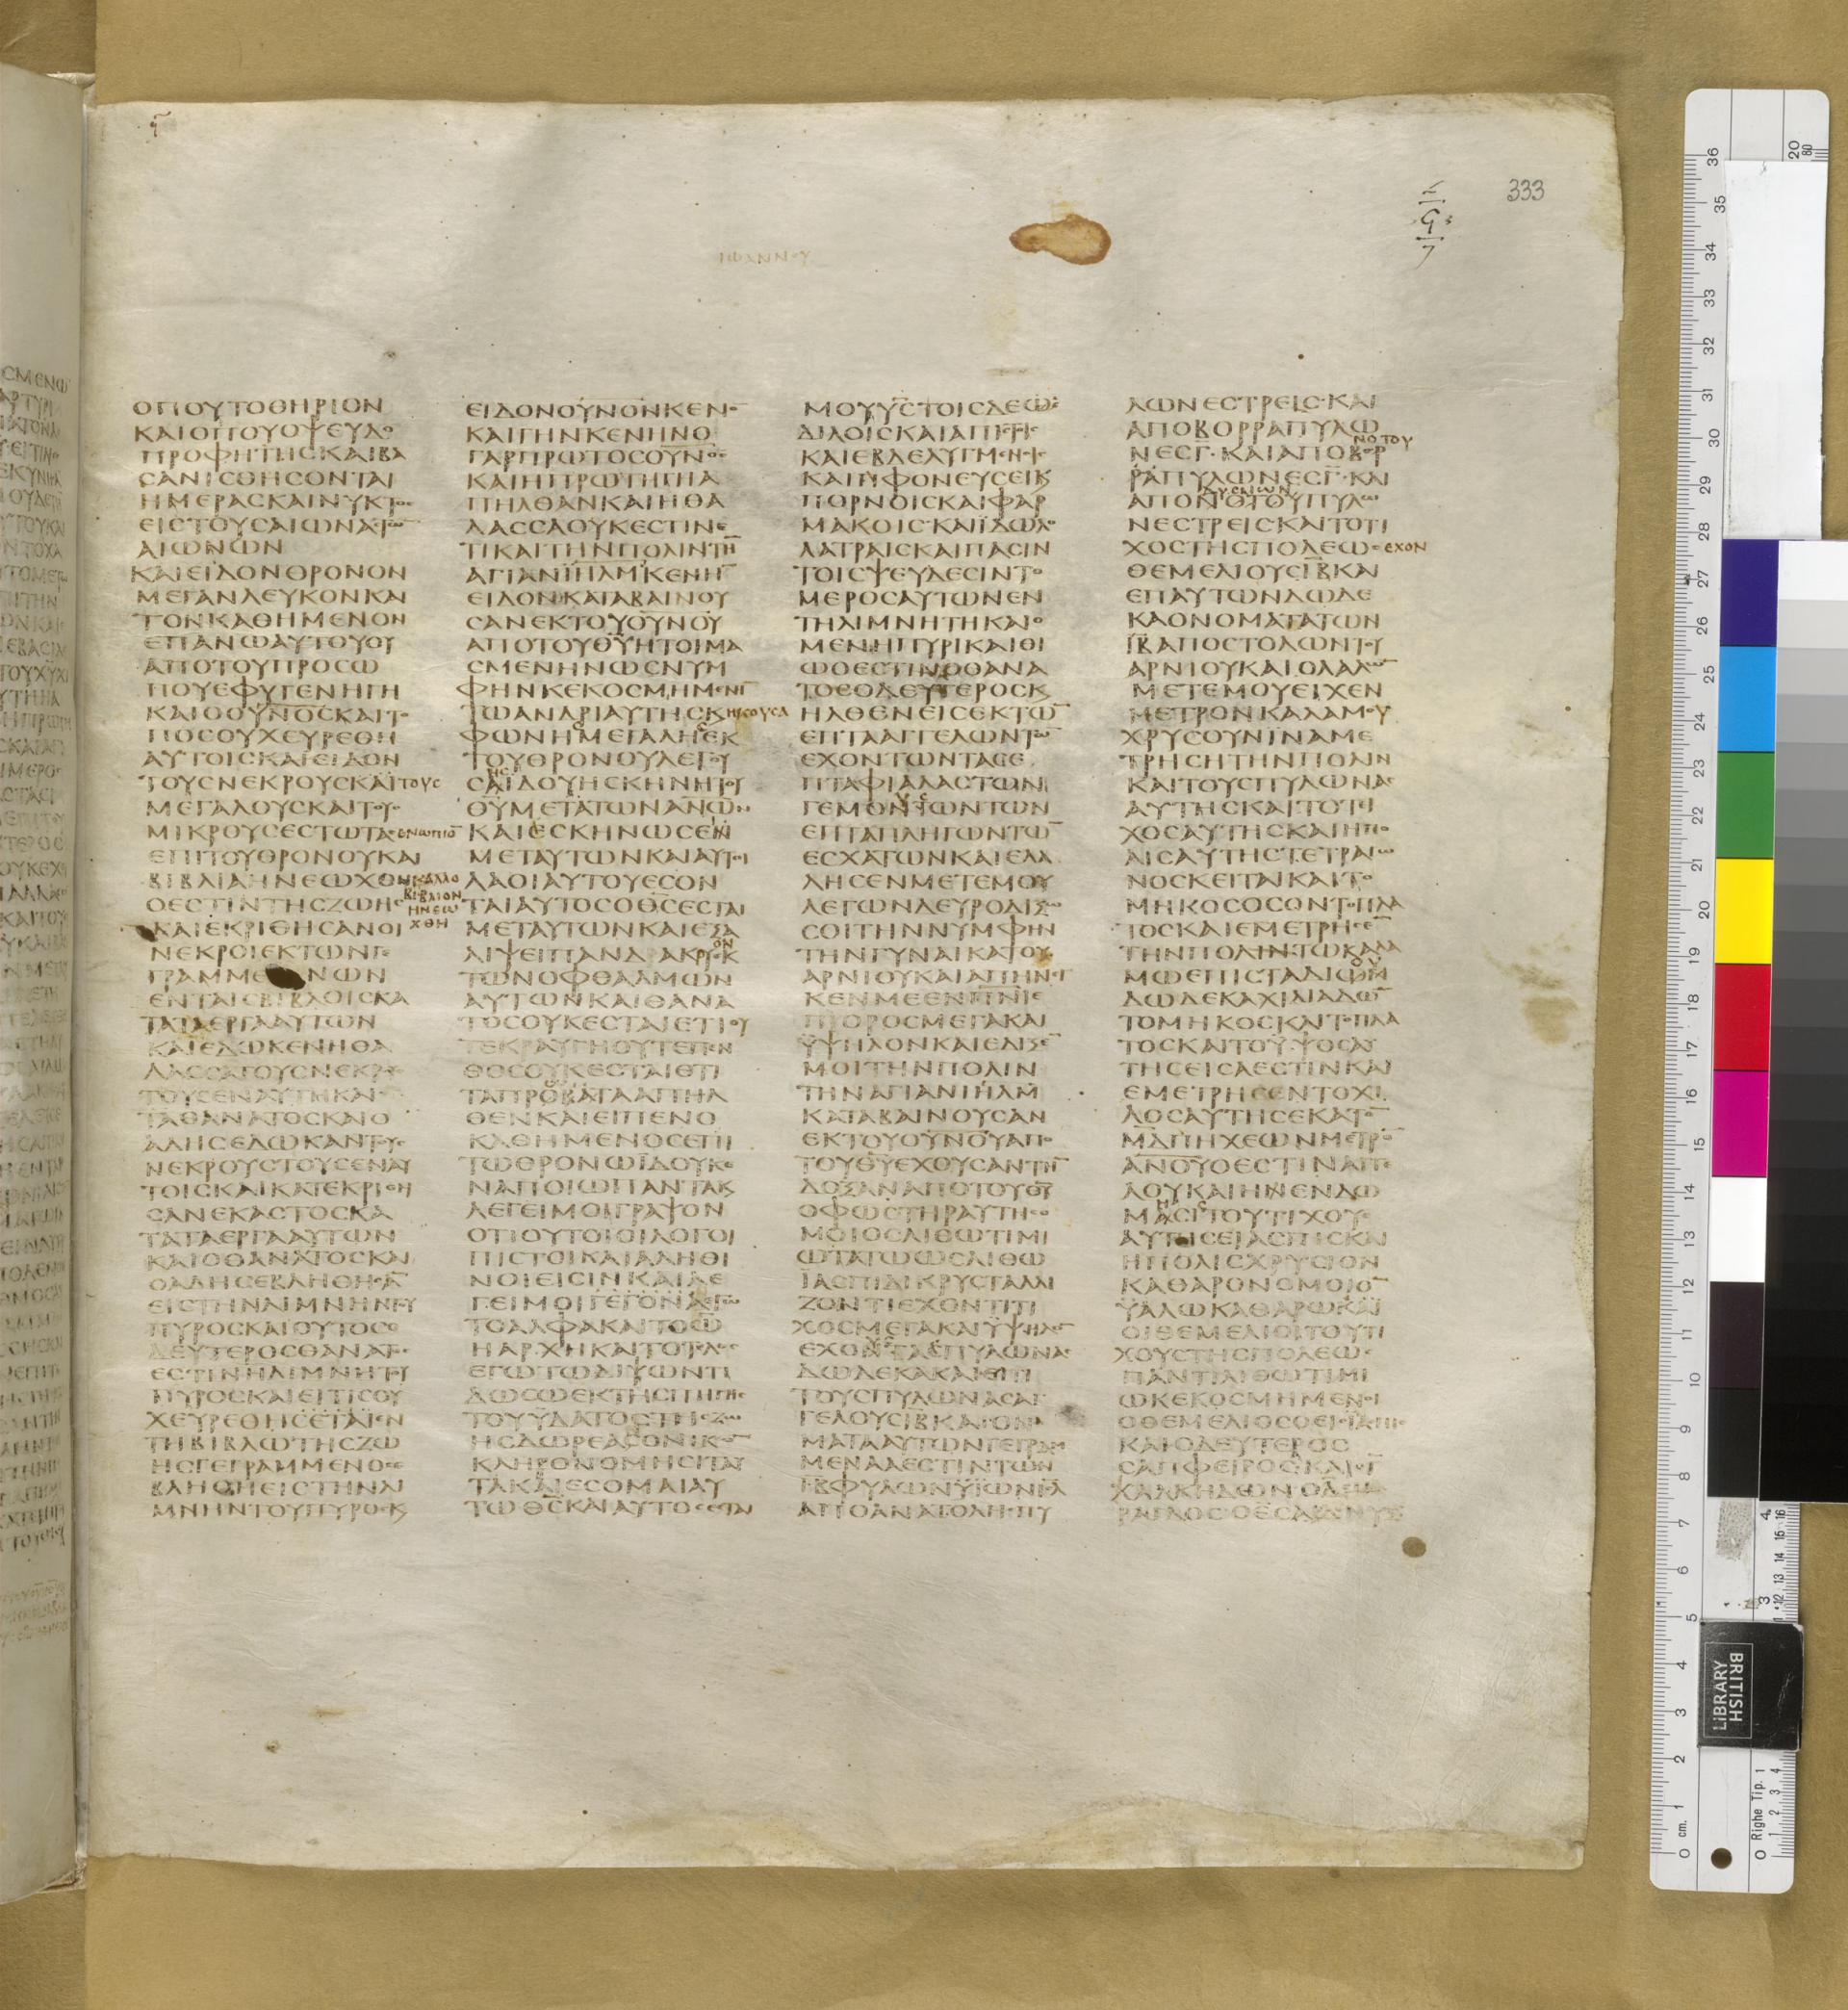 ς
333
ΙΩΑΝΝΟΥ
ΟΠΟΥΤΟΘΗΡΙΟΝ
ΚΑΙΟΠΟΥΟΨΕΥΔΟ
ΠΡΟΦΗΤΗϹΚΑΙΒΑ
ϹΑΝΙϹΘΗϹΟΝΤΑΙ
ΗΜΕΡΑϹΚΑΙΝΥΚΤΟϹ
ΕΙϹΤΟΥϹΑΙΩΝΑϹΤΩ̅
ΑΙΩΝΩΝ
ΚΑΙΕΙΔΟΝΘΡΟΝΟΝ
ΜΕΓΑΝΛΕΥΚΟΝΚΑΙ
ΤΟΝΚΑΘΗΜΕΝΟΝ
ΕΠΑΝΩΑΥΤΟΥΟΥ
ΑΠΟΤΟΥΠΡΟϹΩ
ΠΟΥΕΦΥΓΕΝΗΓΗ
ΚΑΙΟΟΥΝΟϹΚΑΙΤΟ
ΠΟϹΟΥΧΕΥΡΕΘΗ
ΑΥΤΟΙϹΚΑΙΕΙΔΟΝ
ΤΟΥϹΝΕΚΡΟΥϹΚΑΙΤΟΥϹ
ΜΕΓΑΛΟΥϹΚΑΙΤΟΥϹ
ΜΙΚΡΟΥϹΕϹΤΩΤΑϹΕΝΩΠΙΟ̅
ΕΠΙΤΟΥΘΡΟΝΟΥΚΑΙ
ΒΙΒΛΙΑΗΝΕΩΧΘΗ ΚΑΙΑΛΛΟ
ΒΙΒΛΙΟΝ
ΗΝΕΩ
ΧΘΗ
ΟΕϹΤΙΝΤΗϹΖΩΗϹ
ΚΑΙΕΚΡΙΘΗϹΑΝΟΙ
ΝΕΚΡΟΙΕΚΤΩΝΓΕ
ΓΡΑΜΜΕΝΩΝ
ΕΝΤΑΙϹΒΙΒΛΟΙϹΚΑ
ΤΑΤΑΕΡΓΑΑΥΤΩΝ
ΚΑΙΕΔΩΚΕΝΗΘΑ
ΛΑϹϹΑΤΟΥϹΝΕΚΡΟΥϹ
ΤΟΥϹΕΝΑΥΤΗΚΑΙ
ΤΑΘΑΝΑΤΟϹΚΑΙΟ
ΑΔΗϹΕΔΩΚΑΝΤΟΥϹ
ΝΕΚΡΟΥϹΤΟΥϹΕΝΑΥ
ΤΟΙϹΚΑΙΚΑΤΕΚΡΙΘΗ
ϹΑΝΕΚΑϹΤΟϹΚΑ
ΤΑΤΑΕΡΓΑΑΥΤΩΝ
ΚΑΙΟΘΑΝΑΤΟϹΚΑΙ
ΟΑΔΗϹΕΒΛΗΘΗϹΑ̅
ΕΙϹΤΗΝΛΙΜΝΗΝΤΟΥ
ΠΥΡΟϹΚΑΙΟΥΤΟϹΟ
ΔΕΥΤΕΡΟϹΘΑΝΑΤΟϹ
ΕϹΤΙΝΗΛΙΜΝΗΤΟΥ
ΠΥΡΟϹΚΑΙΕΙΤΙϹΟΥ
ΧΕΥΡΕΘΗϹΕΤΑΙΕΝ
ΤΗΒΙΒΛΩΤΗϹΖΩ
ΗϹΓΕΓΡΑΜΜΕΝΟϹΕ
ΒΛΗΘΗΕΙϹΤΗΝΛΙ
ΜΝΗΝΤΟΥΠΥΡΟϹΚ
ΕΙΔΟΝΟΥΝΟΝΚΕΝΟ̅
ΚΑΙΓΗΝΚΕΝΗΝΟ
ΓΑΡΠΡΩΤΟϹΟΥΝΟϹ
ΚΑΙΗΠΡΩΤΗΓΗΑ
ΠΗΛΘΑΝΚΑΙΗΘΑ
ΛΑϹϹΑΟΥΚΕϹΤΙΝΕ
ΤΙΚΑΙΤΗΝΠΟΛΙΝΤΗ̅
ΑΓΙΑΝΙΗΛΜΚΕΝΗ̅
ΕΙΔΟΝΚΑΤΑΒΑΙΝΟΥ
ϹΑΝΕΚΤΟΥΟΥΝΟΥ
ΑΠΟΤΟΥΘΥΗΤΟΙΜΑ
ϹΜΕΝΗΝΩϹΝΥΜ
ΦΗΝΚΕΚΟϹΜΗΜΕΝΗ̅
ΤΩΑΝΔΡΙΑΥΤΗϹΚΗΚΟΥϹΑ
ΦΩΝΗϹΜΕΓΑΛΗϹΕΚ
ΤΟΥΘΡΟΝΟΥΛΕΓΟΥ
ϹΗϹΙΔΟΥΗϹΚΗΝΗΤΟΥ
ΘΥΜΕΤΑΤΩΝΑΝΩ̅Ν
ΚΑΙΕϹΚΗΝΩϹΕΝ
ΜΕΤΑΥΤΩΝΚΑΙΑΥΤΟΙ
ΛΑΟΙΑΥΤΟΥΕϹΟΝ
ΤΑΙΑΥΤΟϹΟΘϹΕϹΤΑΙ
ΜΕΤΑΥΤΩΝΚΑΙΕΞΑ
ΛΙΨΕΙΠΑΝΔΑΚΡΥΟΝΕΚ
ΤΩΝΟΦΘΑΛΜΩΝ
ΑΥΤΩΝΚΑΙΘΑΝΑ
ΤΟϹΟΥΚΕϹΤΑΙΕΤΙΟΥ
ΤΕΚΡΑΥΓΗΟΥΤΕΠΕΝ
ΘΟϹΟΥΚΕϹΤΑΙΕΤΙ
ΤΑΠΡΟΒΑΤΑΑΠΗΛ
ΘΕΝΚΑΙΕΙΠΕΝΟ
ΚΑΘΗΜΕΝΟϹΕΠΙ
ΤΩΘΡΟΝΩΙΔΟΥΚΕ
ΝΑΠΟΙΩΠΑΝΤΑΚ
ΛΕΓΕΙΜΟΙΓΡΑΨΟΝ
ΟΤΙΟΥΤΟΙΟΙΛΟΓΟΙ
ΠΙϹΤΟΙΚΑΙΑΛΗΘΙ
ΝΟΙΕΙϹΙΝΚΑΙΛΕ
ΓΕΙΜΟΙΓΕΓΟΝΑΕΓΩ
ΤΟΑΛΦΑΚΑΙΤΟΩ
ΗΑΡΧΗΚΑΙΤΟΤΕΛΟϹ
ΕΓΩΤΩΔΙΨΩΝΤΙ
ΔΩϹΩΕΚΤΗϹΠΗΓΗϹ
ΤΟΥΫΔΑΤΟϹΤΗϹΖΩ
ΗϹΔΩΡΕΑΝΟΝΙΚΩ̅
ΚΛΗΡΟΝΟΜΗϹΙΤΑΥ
ΤΑΚΑΙΕϹΟΜΑΙΑΥ
ΤΩΘϹΚΑΙΑΥΤΟϹΕϹΤΑΙ
ΜΟΥΥϹΤΟΙϹΔΕΩϹ
ΔΙΛΟΙϹΚΑΙΑΠΙϹΤΟΙϹ
ΚΑΙΕΒΔΕΛΥΓΜΕΝΟΙϹ
ΚΑΙΦΟΝΕΥϹΕΙΚ
ΠΟΡΝΟΙϹΚΑΙΦΑΡ
ΜΑΚΟΙϹΚΑΙΪΔΩΛΟ
ΛΑΤΡΑΙϹΚΑΙΠΑϹΙΝ
ΤΟΙϹΨΕΥΔΕϹΙΝΤΟ
ΜΕΡΟϹΑΥΤΩΝΕΝ
ΤΗΛΙΜΝΗΤΗΚΑΙΟ
ΜΕΝΗΠΥΡΙΚΑΙΘΙ
ΩΟΕϹΤΙΝΟΘΑΝΑ
ΤΟϹΟΔΕΥΤΕΡΟϹΚ
ΗΛΘΕΝΕΙϹΕΚΤΩ̅
ΕΠΤΑΑΓΓΕΛΩΝΤΩ̅
ΕΧΟΝΤΩΝΤΑϹΕ
ΠΤΑΦΙΑΛΑϹΤΩΝ
ΓΕΜΟΝΤΩΝΤΩΝ
ΕΠΤΑΠΛΗΓΩΝΤΩ̅
ΕϹΧΑΤΩΝΚΑΙΕΛΑ
ΛΗϹΕΝΜΕΤΕΜΟΥ
ΛΕΓΩΝΔΕΥΡΟΔΙΞΩ
ϹΟΙΤΗΝΝΥΜΦΗΝ
ΤΗΝΓΥΝΑΙΚΑΤΟΥ
ΑΡΝΙΟΥΚΑΙΑΠΗΝΕΓ
ΚΕΝΜΕΕΝΠΝΙΕ
ΠΙΟΡΟϹΜΕΓΑΚΑΙ
ΫΨΗΛΟΝΚΑΙΕΔΙΞΕ̅
ΜΟΙΤΗΝΠΟΛΙΝ
ΤΗΝΑΓΙΑΝΙΗΛΜ
ΚΑΤΑΒΑΙΝΟΥϹΑΝ
ΕΚΤΟΥΟΥΝΟΥΑΠΟ
ΤΟΥΘΥΕΧΟΥϹΑΝΤΗ̅
ΔΟΞΑΝΑΠΟΤΟΥΘΥ
ΟΦΩϹΤΗΡΑΥΤΗϹΟ
ΜΟΙΟϹΛΙΘΩΤΙΜΙ
ΩΤΑΤΩΩϹΛΙΘΩ
ΪΑϹΠΙΔΙΚΡΥϹΤΑΛΛΙ
ΖΟΝΤΙΕΧΟΝΤΙΤΙ
ΧΟϹΜΕΓΑΚΑΙΫΨΗΛΟ̅
ΔΩΔΕΚΑΚΑΙΕΠΙ
ΤΟΥϹΠΥΛΩΝΑϹΑΓ
ΓΕΛΟΥϹΙΒΚΑΙΟΝΟ
ΜΑΤΑΑΥΤΩΝΓΕΓΡΑΜ
ΜΕΝΑΑΕϹΤΙΝΤΩΝ
ΙΒΦΥΛΩΝΫΪΩΝΙΗΛ
ΑΠΟΑΝΑΤΟΛΗϹΠΥ
ΛΩΝΕϹΤΡΕΙϹ·ΚΑΙ
ΑΠΟΒΟΡΡΑΠΥΛΩ
ΝΕϹΓ·ΚΑΙΑΠΟΒΟΡ ΝΟΤΟΥ
ΡΑΠΥΛΩΝΕϹΓ·ΚΑΙ
ΔΥϹΜΩΝ
ΑΠΟΝΟΤΟΥΠΥΛΩ
ΝΕϹΤΡΕΙϹΚΑΙΤΟΤΙ
ΧΟϹΤΗϹΠΟΛΕΩϹΕΧΟΝ
ΘΕΜΕΛΙΟΥϹΙΒΚΑΙ
ΕΠΑΥΤΩΝΔΩΔΕ
ΚΑΟΝΟΜΑΤΑΤΩΝ
ΙΒΑΠΟϹΤΟΛΩΝΤΟΥ
ΑΡΝΙΟΥΚΑΙΟΛΑΛΩ̅
ΜΕΤΕΜΟΥΕΙΧΕΝ
ΜΕΤΡΟΝΚΑΛΑΜΟΥ
ΧΡΥϹΟΥΝΙΝΑΜΕ
ΤΡΗϹΗΤΗΝΠΟΛΙΝ
ΚΑΙΤΟΥϹΠΥΛΩΝΑϹ
ΑΥΤΗϹΚΑΙΤΟΤΙ
ΧΟϹΑΥΤΗϹΚΑΙΗΠΟ
ΛΙϹΑΥΤΗϹΤΕΤΡΑΓΩ
ΝΟϹΚΕΙΤΑΙΚΑΙΤΟ
ΜΗΚΟϹΟϹΟΝΤΟΠΛΑ
ΤΟϹΚΑΙΕΜΕΤΡΗϹΕ̅
ΤΗΝΠΟΛΙΝΤΩΚΑΛΑ
ΜΩΕΠΙϹΤΑΔΙΟΥϹ
ΔΩΔΕΚΑΧΙΛΙΑΔΩ̅
ΤΟΜΗΚΟϹΚΑΙΤΟΠΛΑ
ΤΟϹΚΑΙΤΟΥΨΟϹΑΥ
ΤΗϹΕΙϹΑΕϹΤΙΝΚΑΙ
ΕΜΕΤΡΗϹΕΝΤΟΧΙ
ΛΟϹΑΥΤΗϹΕΚΑΤΟ̅
ΜΔΠΗΧΕΩΝΜΕΤΡΟ̅
ΑΝΟΥΟΕϹΤΙΝΑΓΓΕ
ΛΟΥΚΑΙΗΝΕΝΔΩ
ΜΗϹΙϹΤΟΥΤΙΧΟΥϹ
ΑΥΤΗϹΕΙΑϹΠΙϹΚΑΙ
ΗΠΟΛΙϹΧΡΥϹΙΟΝ
ΚΑΘΑΡΟΝΟΜΟΙΟ̅
ΫΑΛΩΚΑΘΑΡΩΚΑΙ
ΟΙΘΕΜΕΛΙΟΙΤΟΥΤΙ
ΧΟΥϹΤΗϹΠΟΛΕΩϹ
ΠΑΝΤΙΛΙΘΩΤΙΜΙ
ΩΚΕΚΟϹΜΗΜΕΝΟΙ
ΟΘΕΜΕΛΙΟϹΟΕΙϹΪΑϹΠΙϹ
ΚΑΙΟΔΕΥΤΕΡΟϹ
ϹΑΠΦΕΙΡΟϹΚΑΙΟΓ